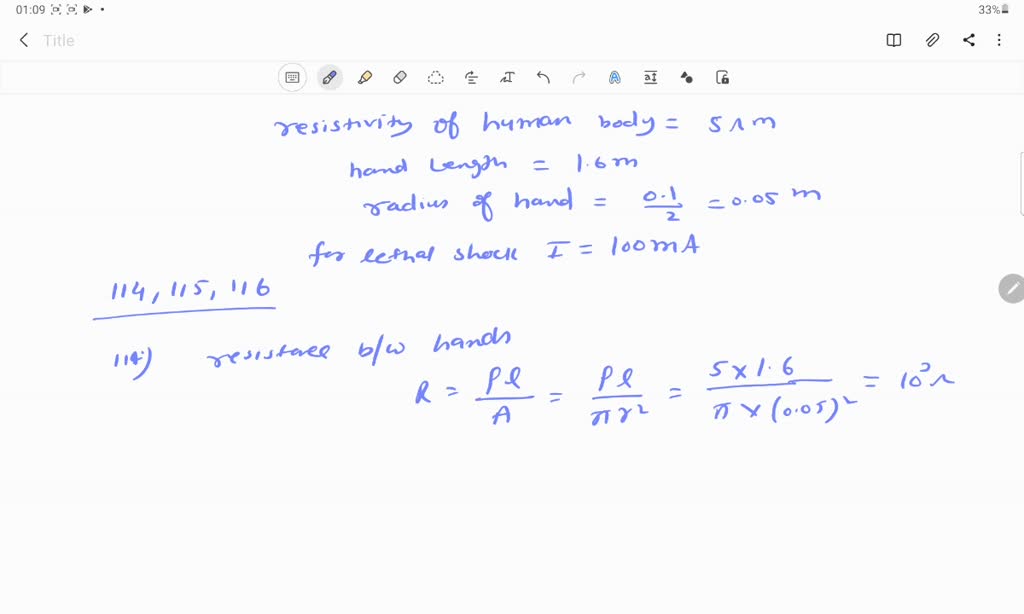 01:09
33%
Title
resistivity of human body = 5 Ωm
hand length = 1.6 m
radius of hand = 0.1/2 = 0.05 m
for lethal shock I = 100 mA
114, 115, 116
114) resistance b/w hands
R = ρl/A = ρl/πr² = 5 × 1.6/π × (0.05)² = 10³ Ω